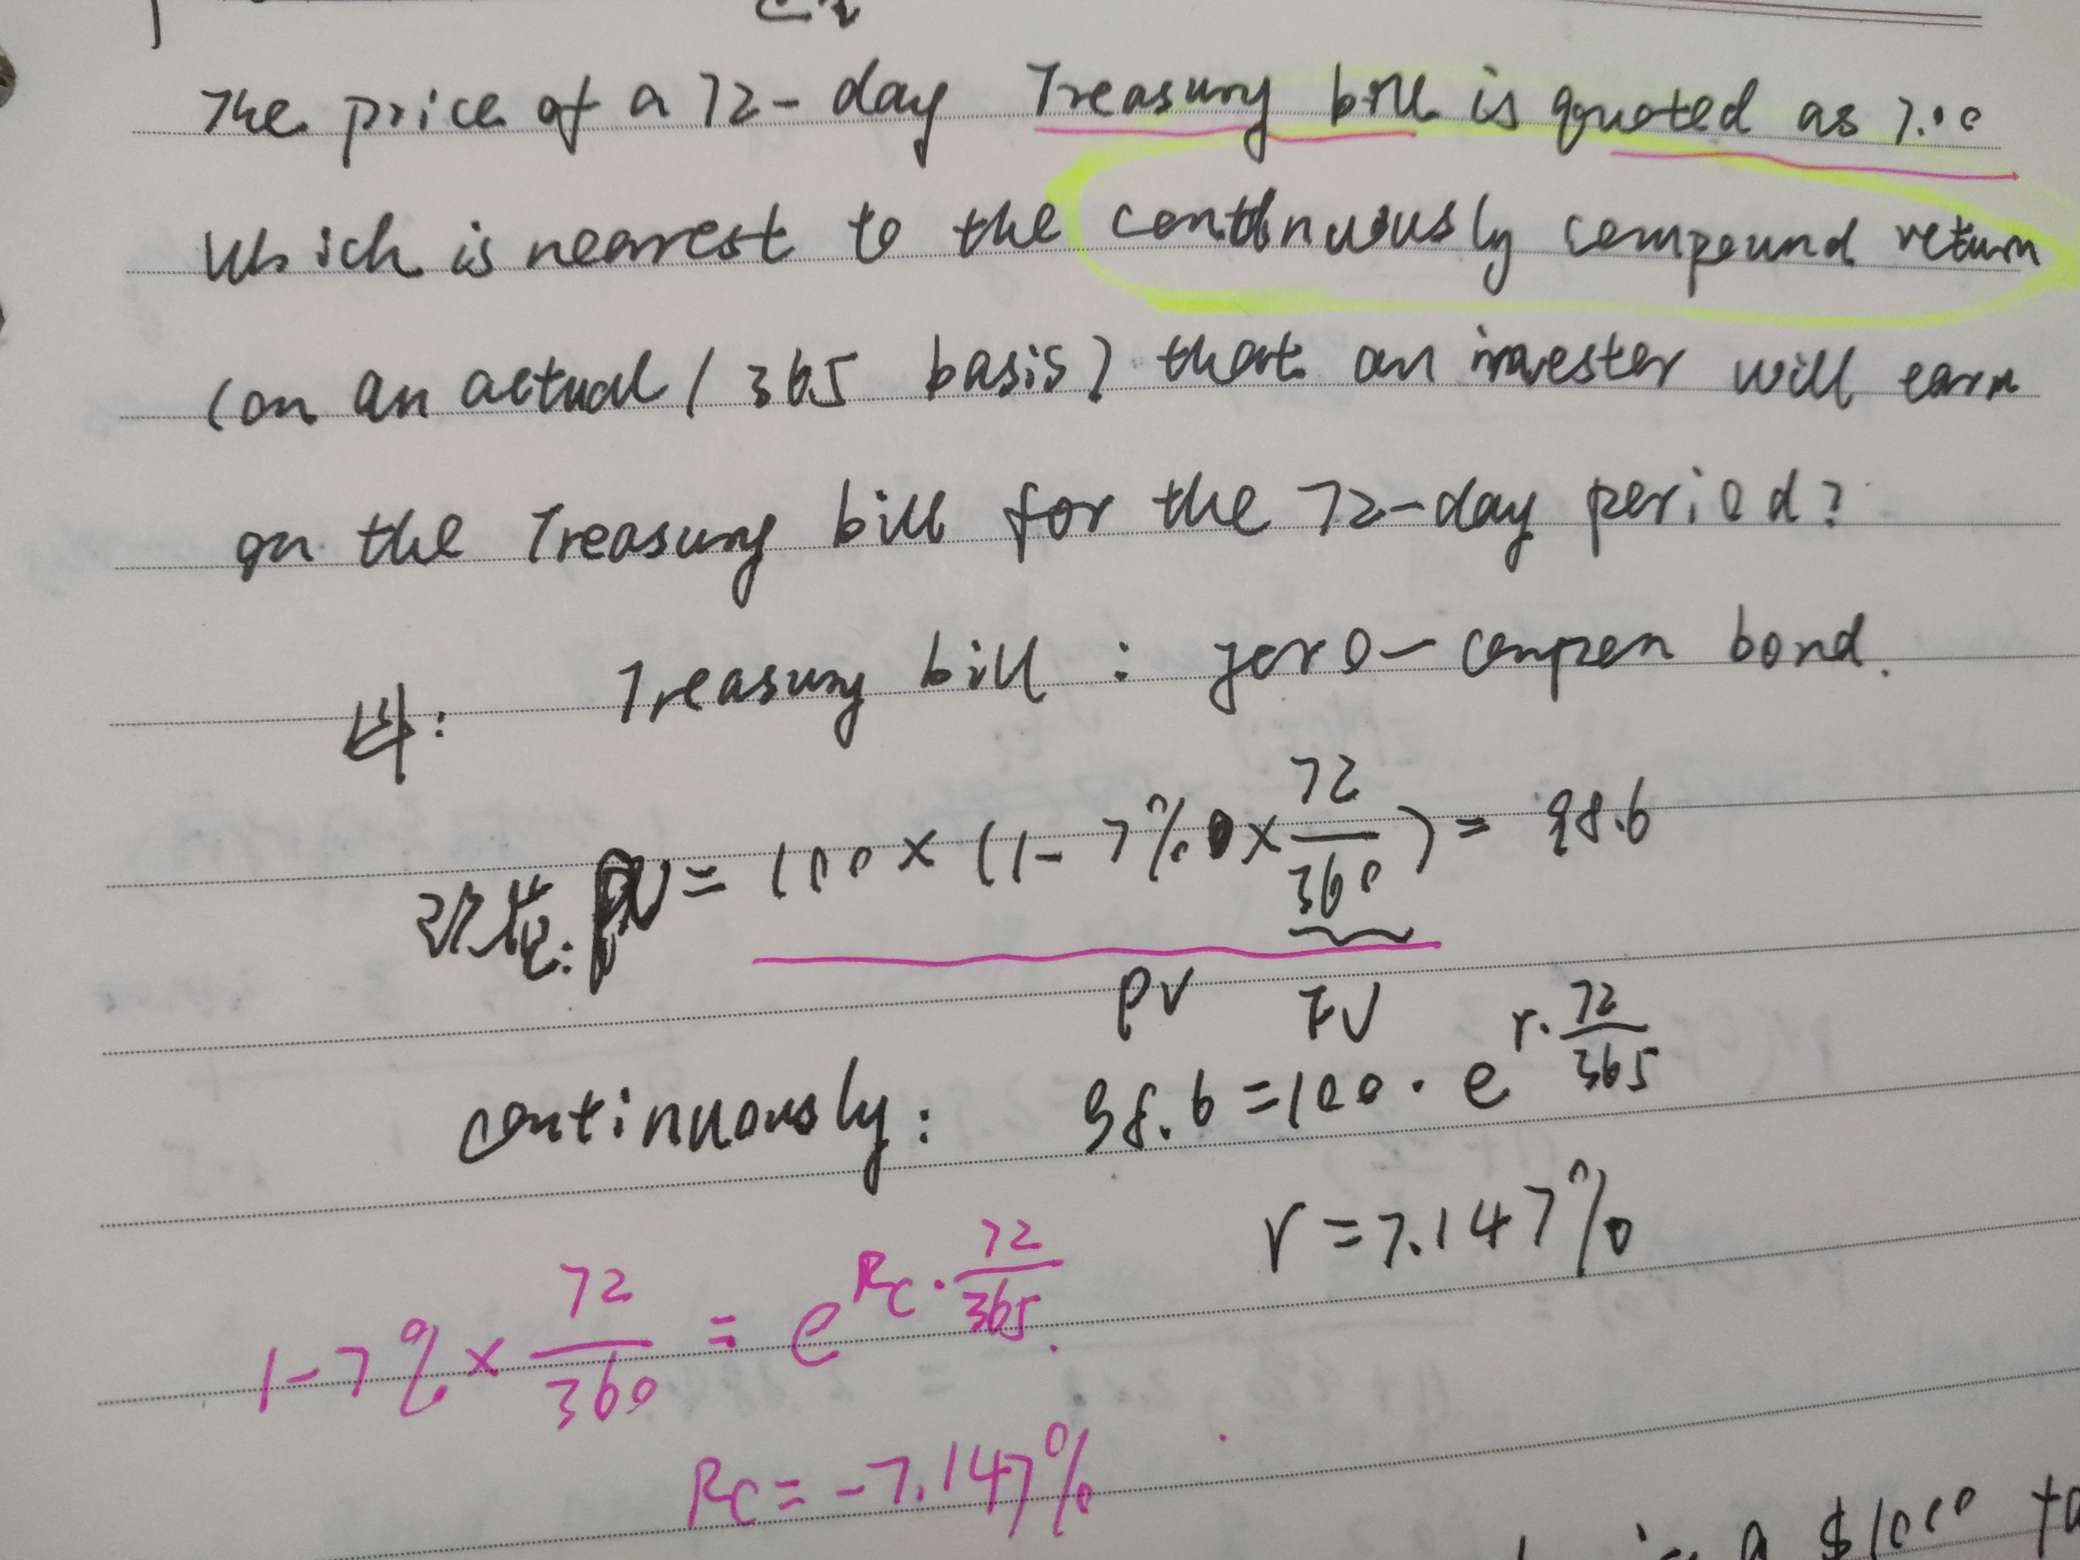 The price of a 72-day Treasury bill is quoted as 7.00
which is nearest to the continuously compound return
(on an actual / 365 basis) that an invester will earn
on the Treasury bill for the 72-day period?
Treasury bill : zero-coupon bond.
PV = 100 × (1 - 7% × 72/360) = 98.6
PV FV
continuously: 98.6 = 100 · e^(r · 72/365)
r = 7.147%
1 - 7% × 72/360 = e^(Rc · 72/365).
Rc = -7.147%
is a $1000